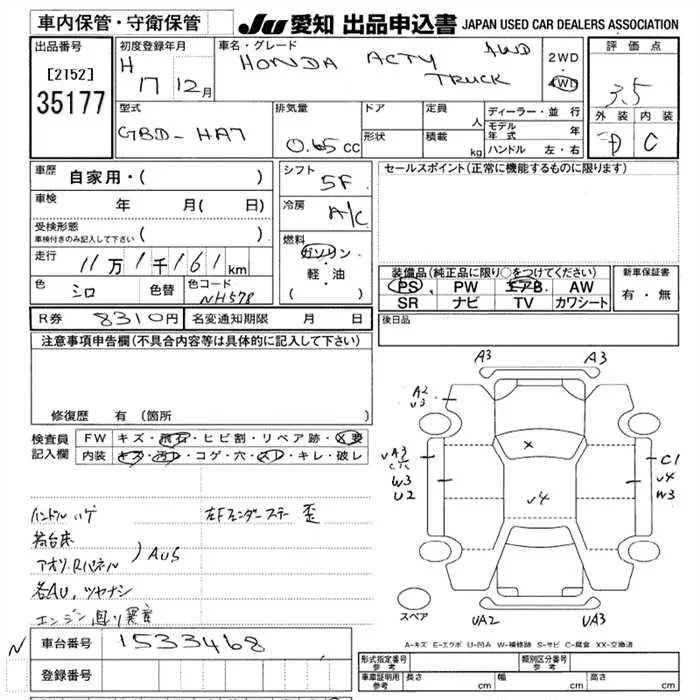 車内保管・守衛保管
JU 愛知 出品申込書 JAPAN USED CAR DEALERS ASSOCIATION
出品番号
[2152]
35177
初度登録年月
H 17 12月
車名・グレード
HONDA ACTY 4WD
TRUCK
2WD
・
4WD
評価点
3.5
外装 内装
C
型式
GBD-HA7
排気量
0.65cc
ドア
形状
定員
人
積載
kg
ディーラー・並行
モデル年式 年
ハンドル 左・右
車歴 自家用・( )
車検 年 月( 日)
受検形態
車検付きのみ記入して下さい ( )
走行 11万1千161km
色 シロ 色替 色コード NH578
シフト 5F
冷房 A/C
燃料
ガソリン
・
軽・油
( )
セールスポイント(正常に機能するものに限ります)
装備品(純正品に限り○をつけてください)
PS PW エアB AW
SR ナビ TV カワシート
新車保証書
有・無
R券 8310円 名変通知期限 月 日
後日品
注意事項申告欄(不具合内容等は具体的に記入して下さい)
修復歴 有 (箇所 )
検査員記入欄
FW キズ・飛石・ヒビ割・リペア跡・X要
内装 キズ・汚レ・コゲ・穴・スレ・キレ・破レ
ハンドル ハゲ
左Fフェンダーステー 歪
荷台床
アオリ.Rパネル ) AUS
各AU, ツヤナシ
エンジン 回り
A3 A3
A2
v3
X
v4
UA3
W3
U2
C1
v4
W3
スペア
UA2 UA3
A-キズ E-エクボ U-凹み W-補修跡 S-サビ C-腐食 XX-交換済
N
車台番号 1533468
登録番号
形式指定番号 参考
類別区分番号 参考
車庫証明用 参考
長さ cm 幅 cm 高さ cm